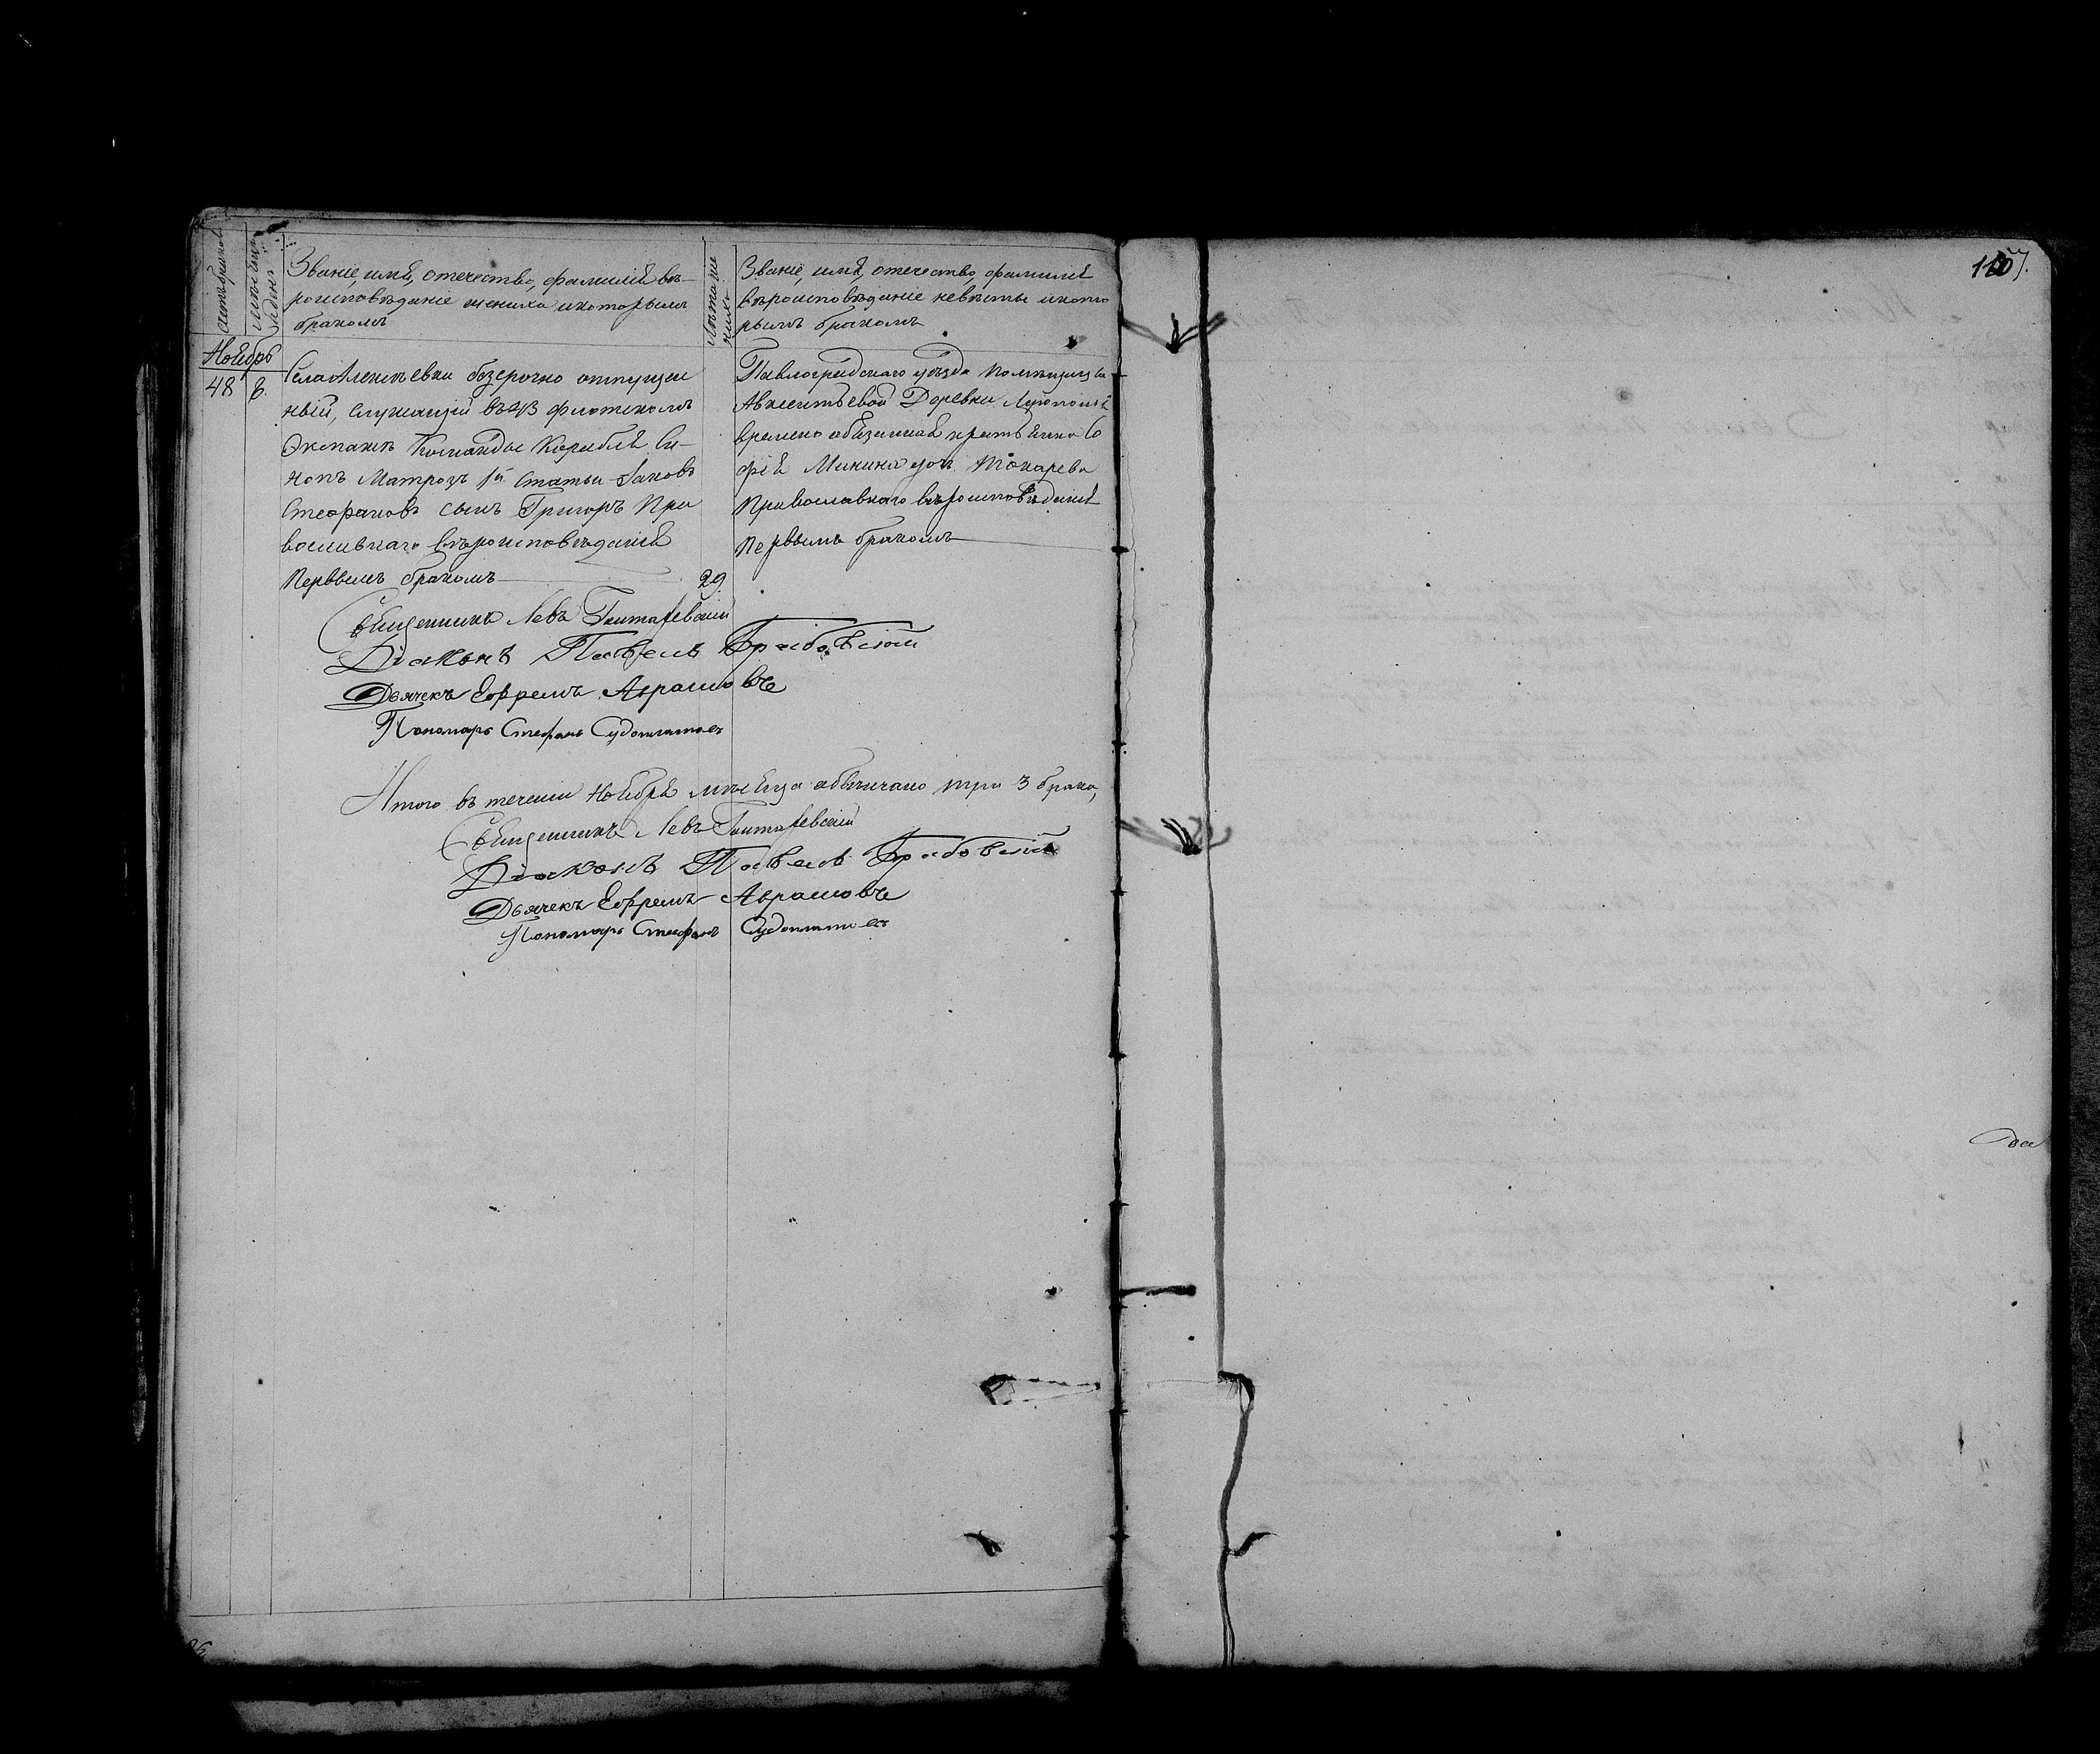 Счетъ браковъ
Мѣсяцъ и день
Званіе, имя, отечество, фамилія вѣ-
роисповѣданіе жениха и которымъ
бракомъ
Лѣта же
ниха
Званіе, имя, отечество, фамилія
вѣроисповѣданіе невѣсты и кото
рымъ бракомъ
Ноябрь
48 8.
Села безсрочно отпущен
ный, служащій въ флотскомъ
Экипажѣ Команды Корабля Си-
нопъ Матрозъ 1й статьи Іаковъ
Стефановъ сынъ Григоръ Пра
вославнаго вѣроисповѣданія
Первымъ бракомъ 29.
Павлоградскаго уѣзда помѣщицы
Деревни
времено обязанная крестьянка Со
фія дочь Токарева
Православнаго вѣроисповѣданія
Первымъ бракомъ
Священникъ Левъ
Діаконъ Павелъ Грабовскій
Дьячекъ Ефремъ Аврамовъ
Пономарь Стефанъ
Итого въ теченіи Ноября мѣсяца обвѣнчано три 3 брака,
Священникъ Левъ
Діаконъ Павелъ Грабовскій
Дьячекъ Ефремъ Аврамовъ
Пономарь Стефанъ